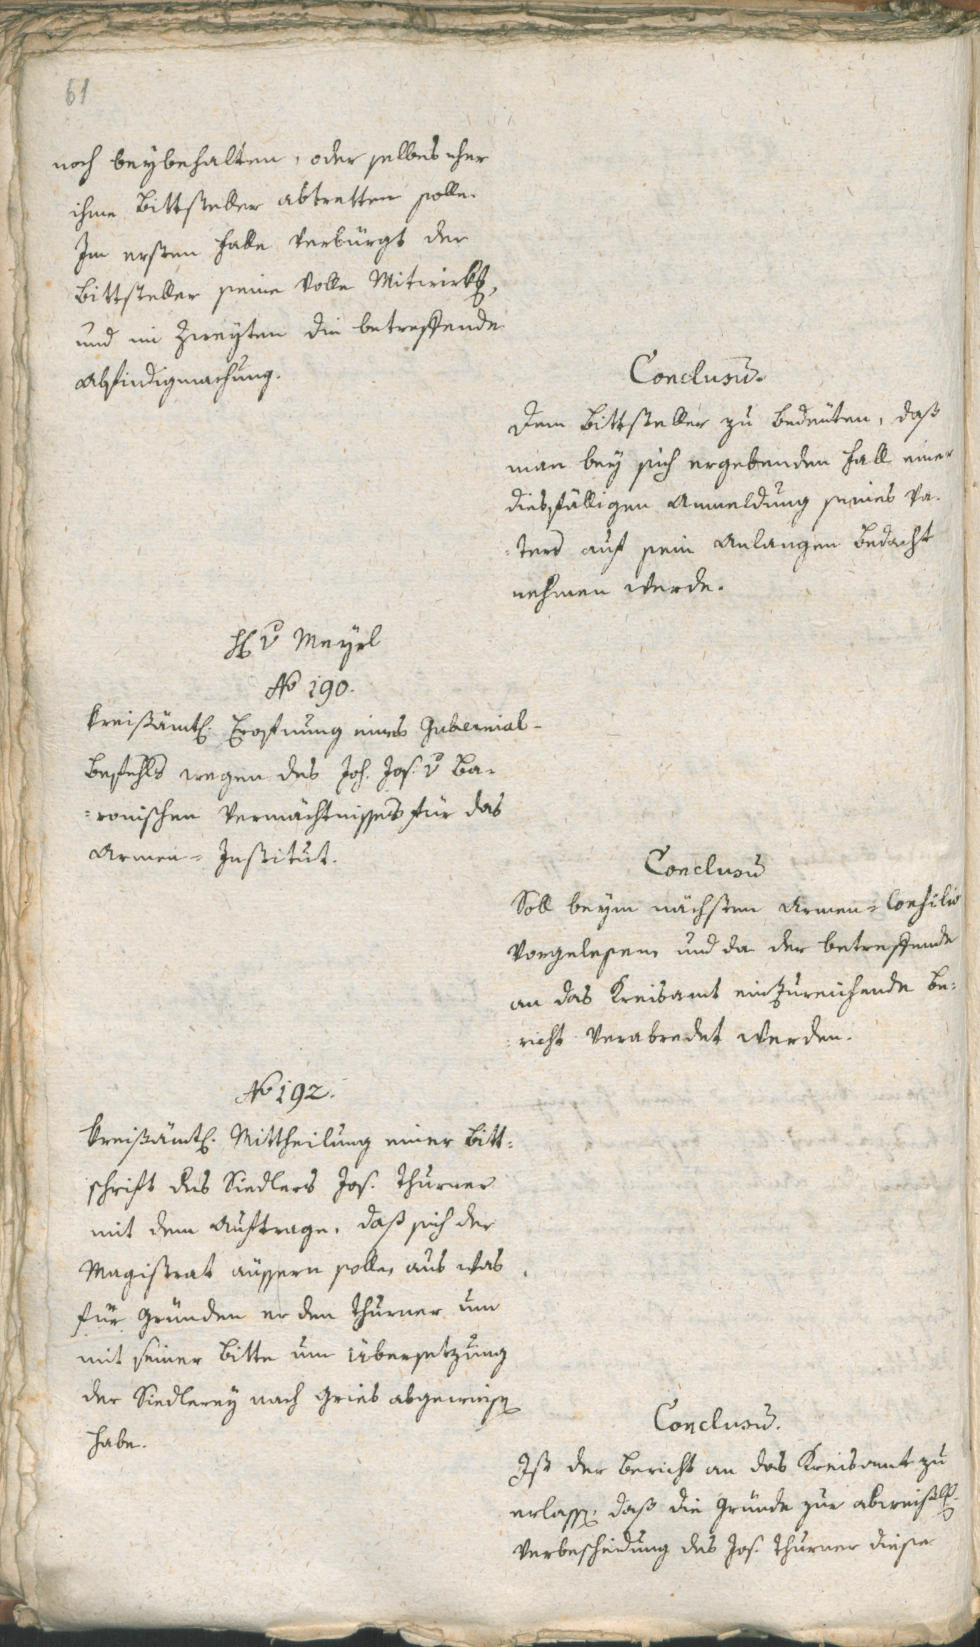 61
noch beybehalten, oder selbes eher
ihme Bittsteller abtretten solle.
Im ersten Falle verbürgt der
Bittsteller seine volle Mitwirkg,
und im Zweyten die betreffende
Abfindigmachung.
Conclusū.
Dem Bittsteller zu bedeuten, daß
man bey sich ergebenden Fall einer
diesfälligen Anmeldung seines Va-
ters auf sein Anlangen Bedacht
nehmen werde.
H v Mayrl
No 190.
Kreißämtl. Eröfnung eines Gubernial-
Befehls wegen des Joh. Jos. v Ba-
=ronischen Vermächtnisses für das
Armen-Institut.
Conclusū
Soll beym nächsten Armen-Consilio
vorgelesen, und da der betreffende
an das Kreisamt einzureichende Be-
richt verabredet werden.
No 192.
Kreißämtl. Mittheilung einer Bitt-
schrift des Siedlers Jos. Thurner
mit dem Auftrage, daß sich der
Magistrat äussern solle, aus was
für Gründen er den Thurner um
mit seiner Bitte um Übersetzung
der Siedlerey nach Gries abgewiesen
habe.
Conclusū.
Ist der Bericht an das Kreisamt zu
erlassen, daß die Gründe zur
Verbescheidung des Jos. Thurner diese